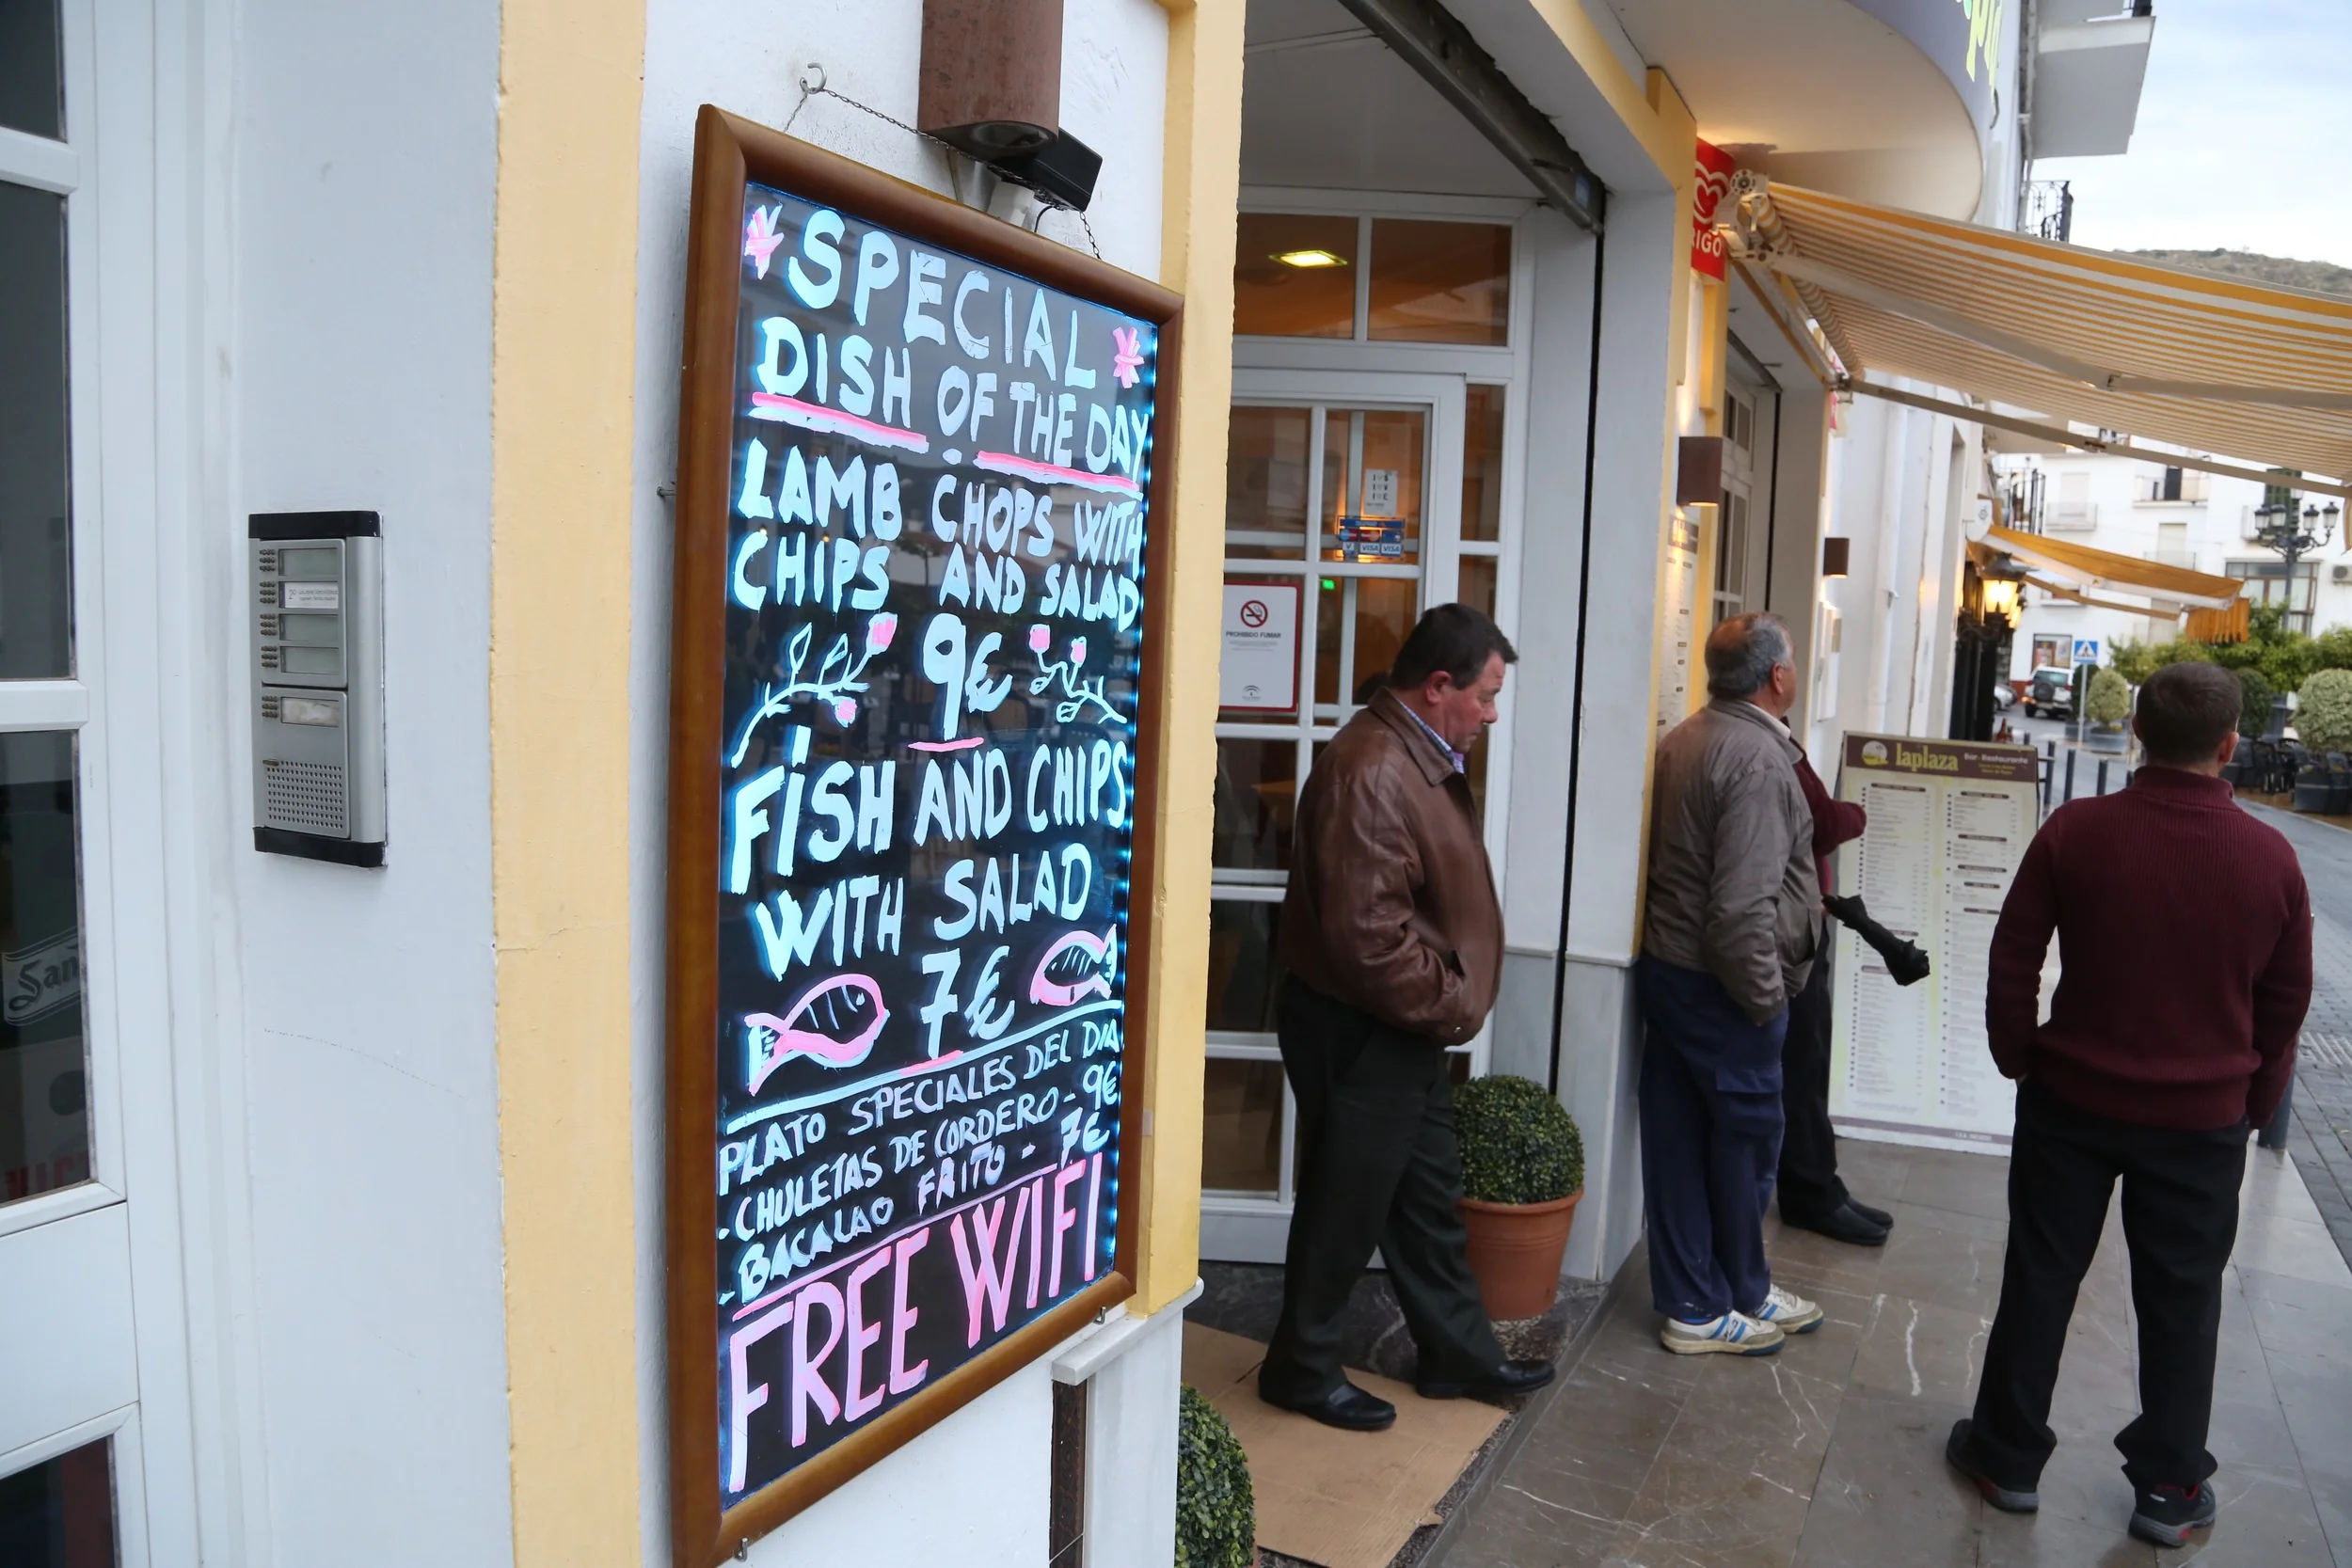 SPECIAL
DISH OF THE DAY
LAMB CHOPS WITH
CHIPS AND SALAD
9€
FISH AND CHIPS
WITH SALAD
7€
PLATO SPECIALES DEL DIA
-CHULETAS DE CORDERO - 9€
-BACALAO FRITO - 7€
FREE WIFI
PROHIBIDO FUMAR
VISA VISA
laplaza Bar-Restaurante
San